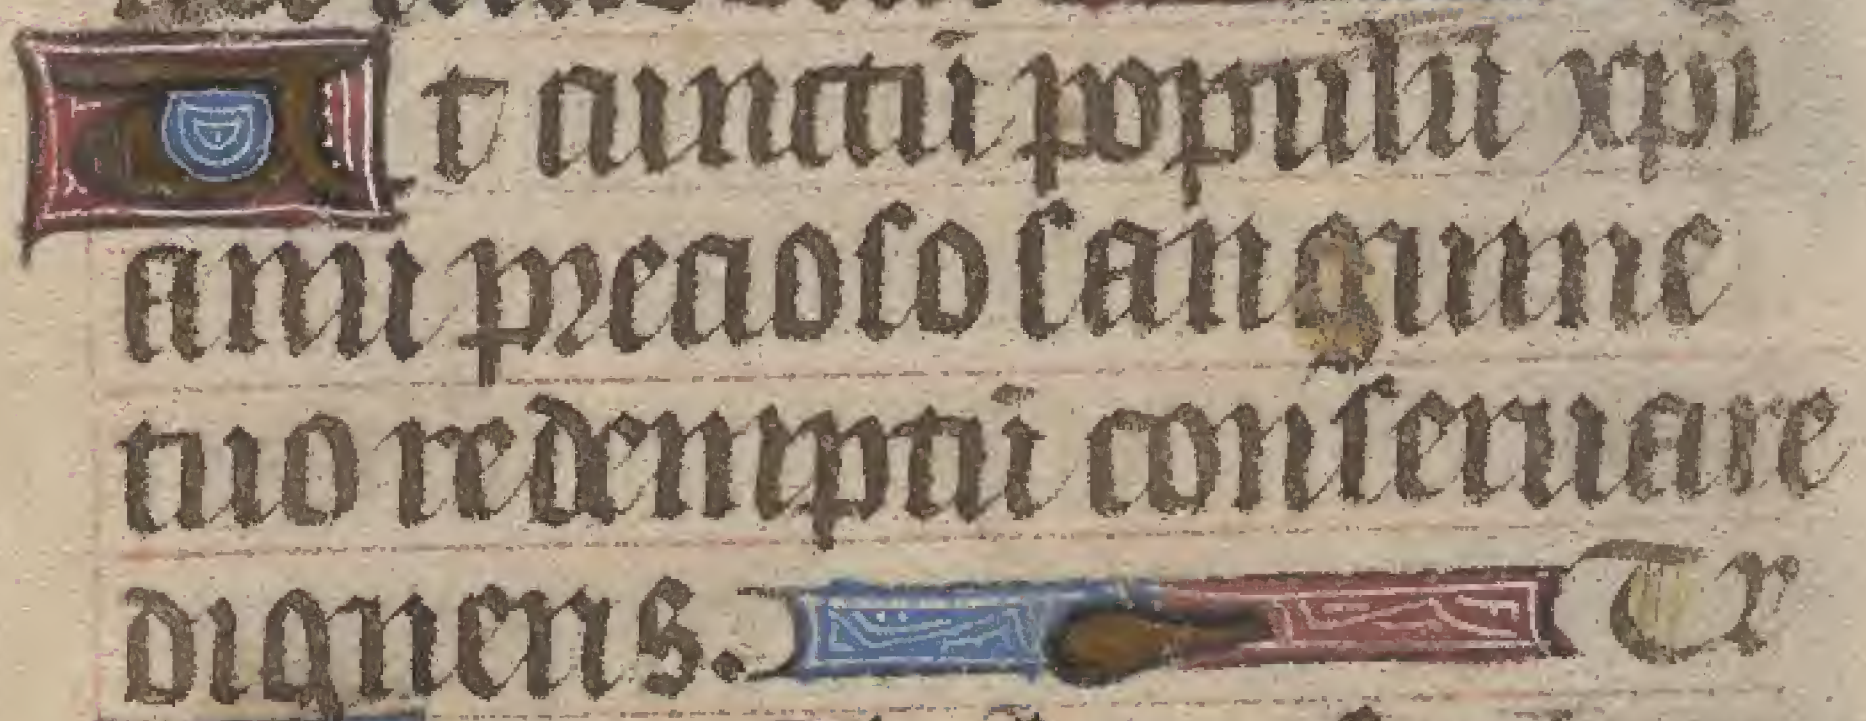 Ut cunctū populū xpi
anū precioso sanguine
tuo redemptū conseruare
digneris. Tr